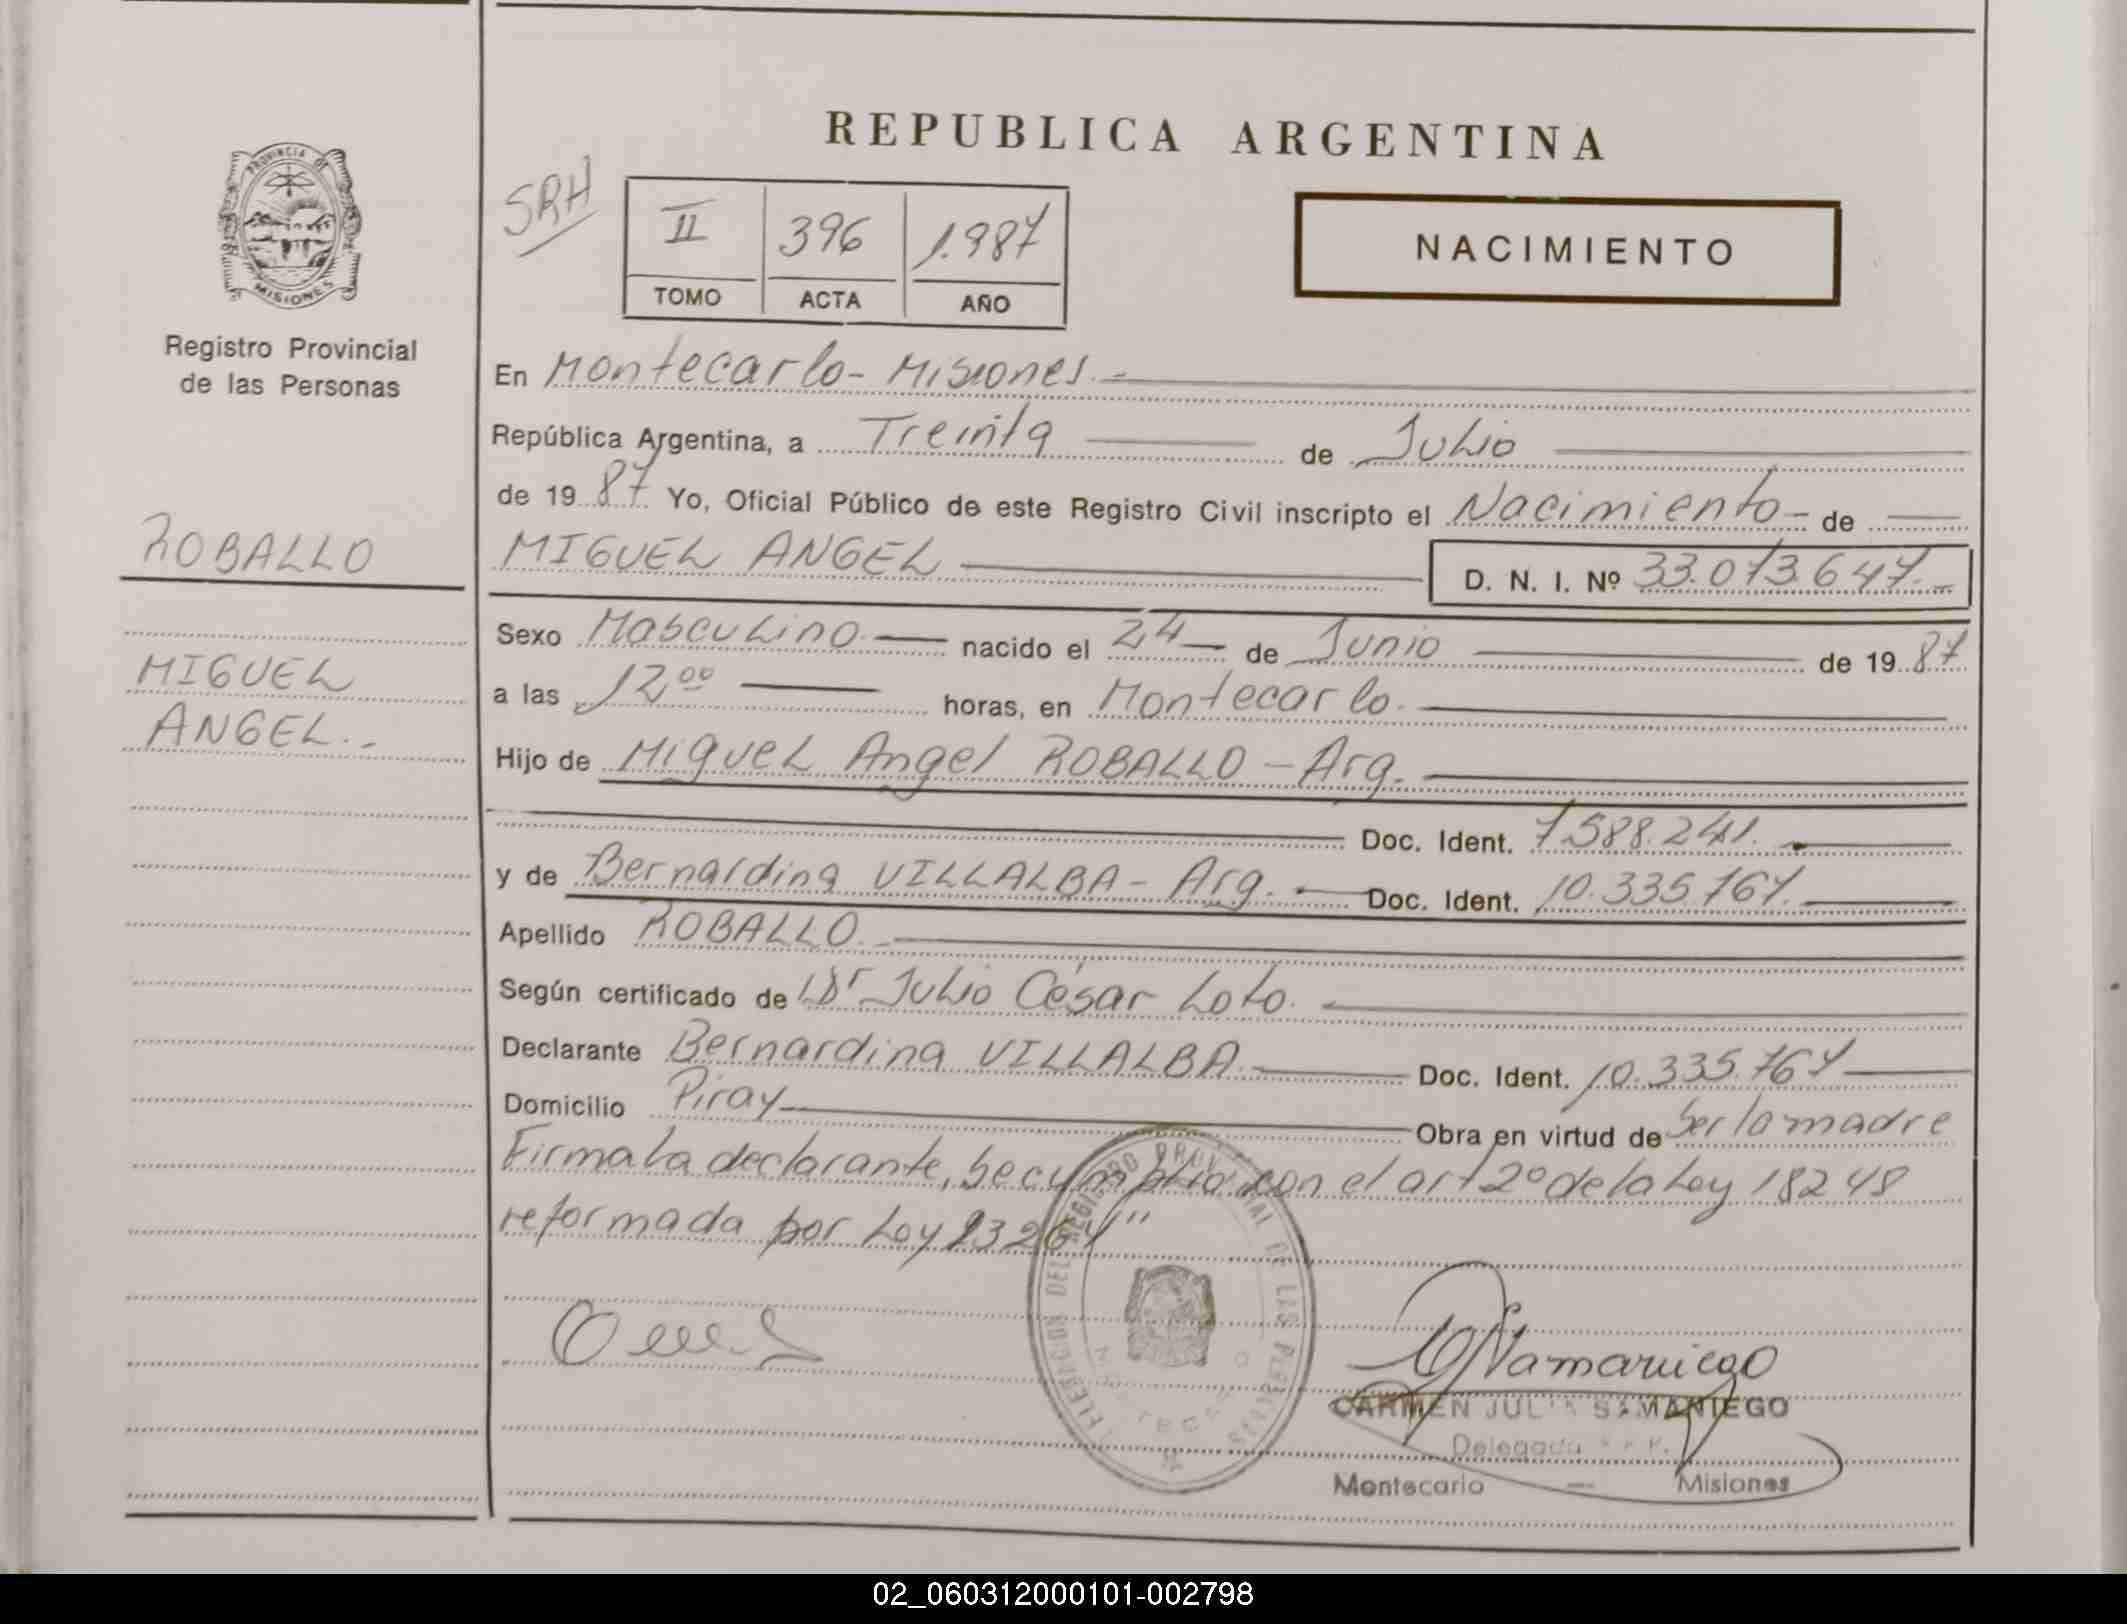 REPUBLICA ARGENTINA
PROVINCIA DE
MISIONES
Registro Provincial
de las Personas
SRH
II 396 1.987
TOMO ACTA AÑO
NACIMIENTO
En Montecarlo - Misiones.-
República Argentina, a Treinta de Julio
de 19 87 Yo, Oficial Público de este Registro Civil inscripto el Nacimiento - de
ROBALLO
MIGUEL ANGEL D. N. I. Nº 33.073.647.-
MIGUEL
ANGEL.-
Sexo Masculino nacido el 24 de Junio de 19 87
a las 12 00 horas, en Montecarlo.
Hijo de Miguel Angel ROBALLO - Arg.
Doc. Ident. 7.588.241.
y de Bernardina VILLALBA - Arg. Doc. Ident. 10.335.767.
Apellido ROBALLO.-
Según certificado de Dr Julio César Loto.
Declarante Bernardina VILLALBA. Doc. Ident. 10.335.767
Domicilio Piray Obra en virtud de Ser la madre
Firma la declarante, se cumplió con el art 2º de la Ley 18248
reformada por Ley 23264"
DELEGACION DEL REGISTRO PROVINCIAL DE LAS PERSONAS
CARMEN JULIA SAMANIEGO
Delegada
Montecarlo — Misiones
02_060312000101-002798